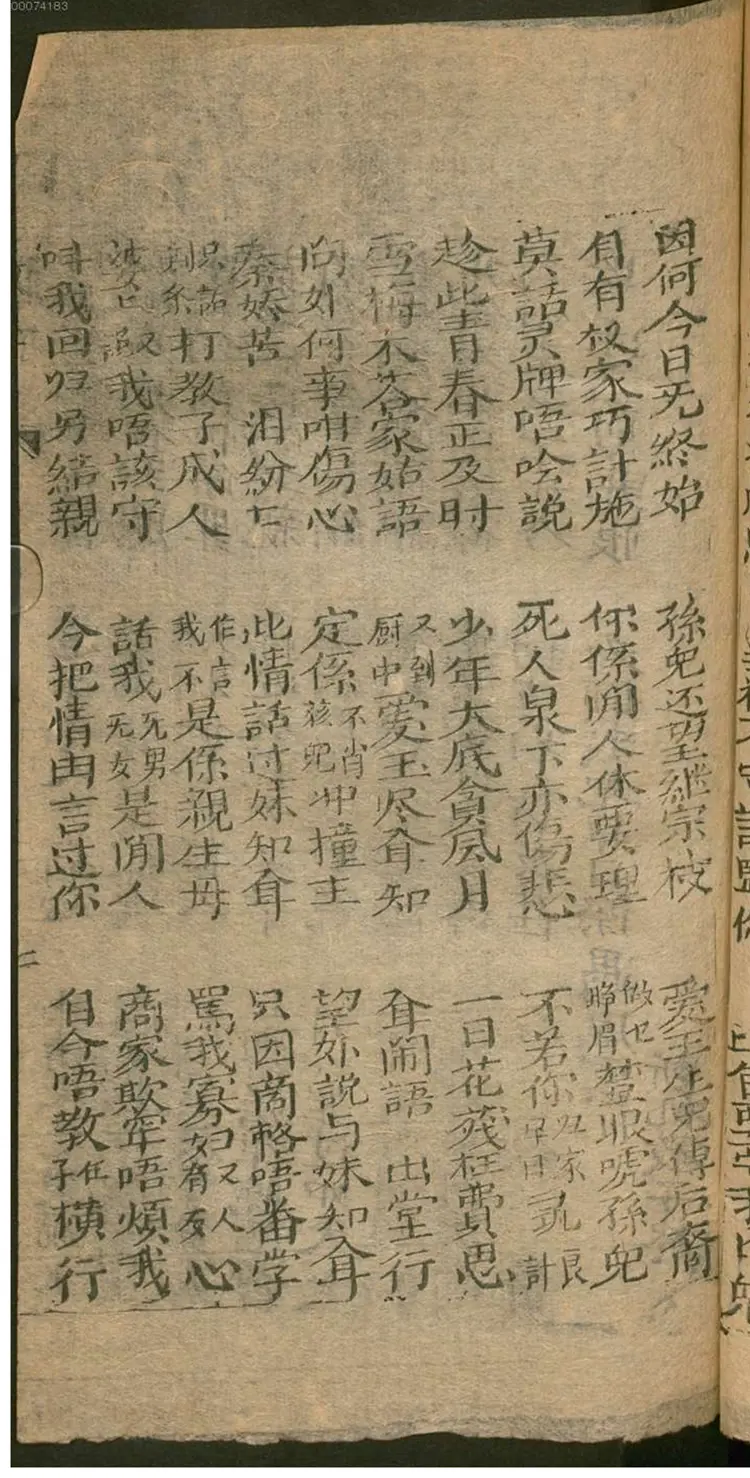 00074183
因何今日无終始 孫兒还望継宗枝 爱玉生兒傳后裔
自有叔家巧計施 你係閒人休要理 做乜睁眉䁪眼唬孫兒
莫話灵牌唔噲説 死人泉下亦傷悲 不若你 家早日 良計
趁此青春正及时 少年大底貪风月 一日花残枉費思
雪梅不答家姑語 又到厨中爱玉尽耷知 耷鬧語 出堂行
问如何事咁傷心 定係不肖孩兒冲撞主 望妳説与妹知耷
秦娇苦 泪紛乜 此情話过妹知耷 只因商輅唔番学
只話 打教子成人 作言我不是係親生母 罵我寡妇又有反人心
我唔該守 話我死男死女是閒人 商家欺牢唔煩我
呌我回归另結親 今把情由言过你 自今唔教任子横行
二